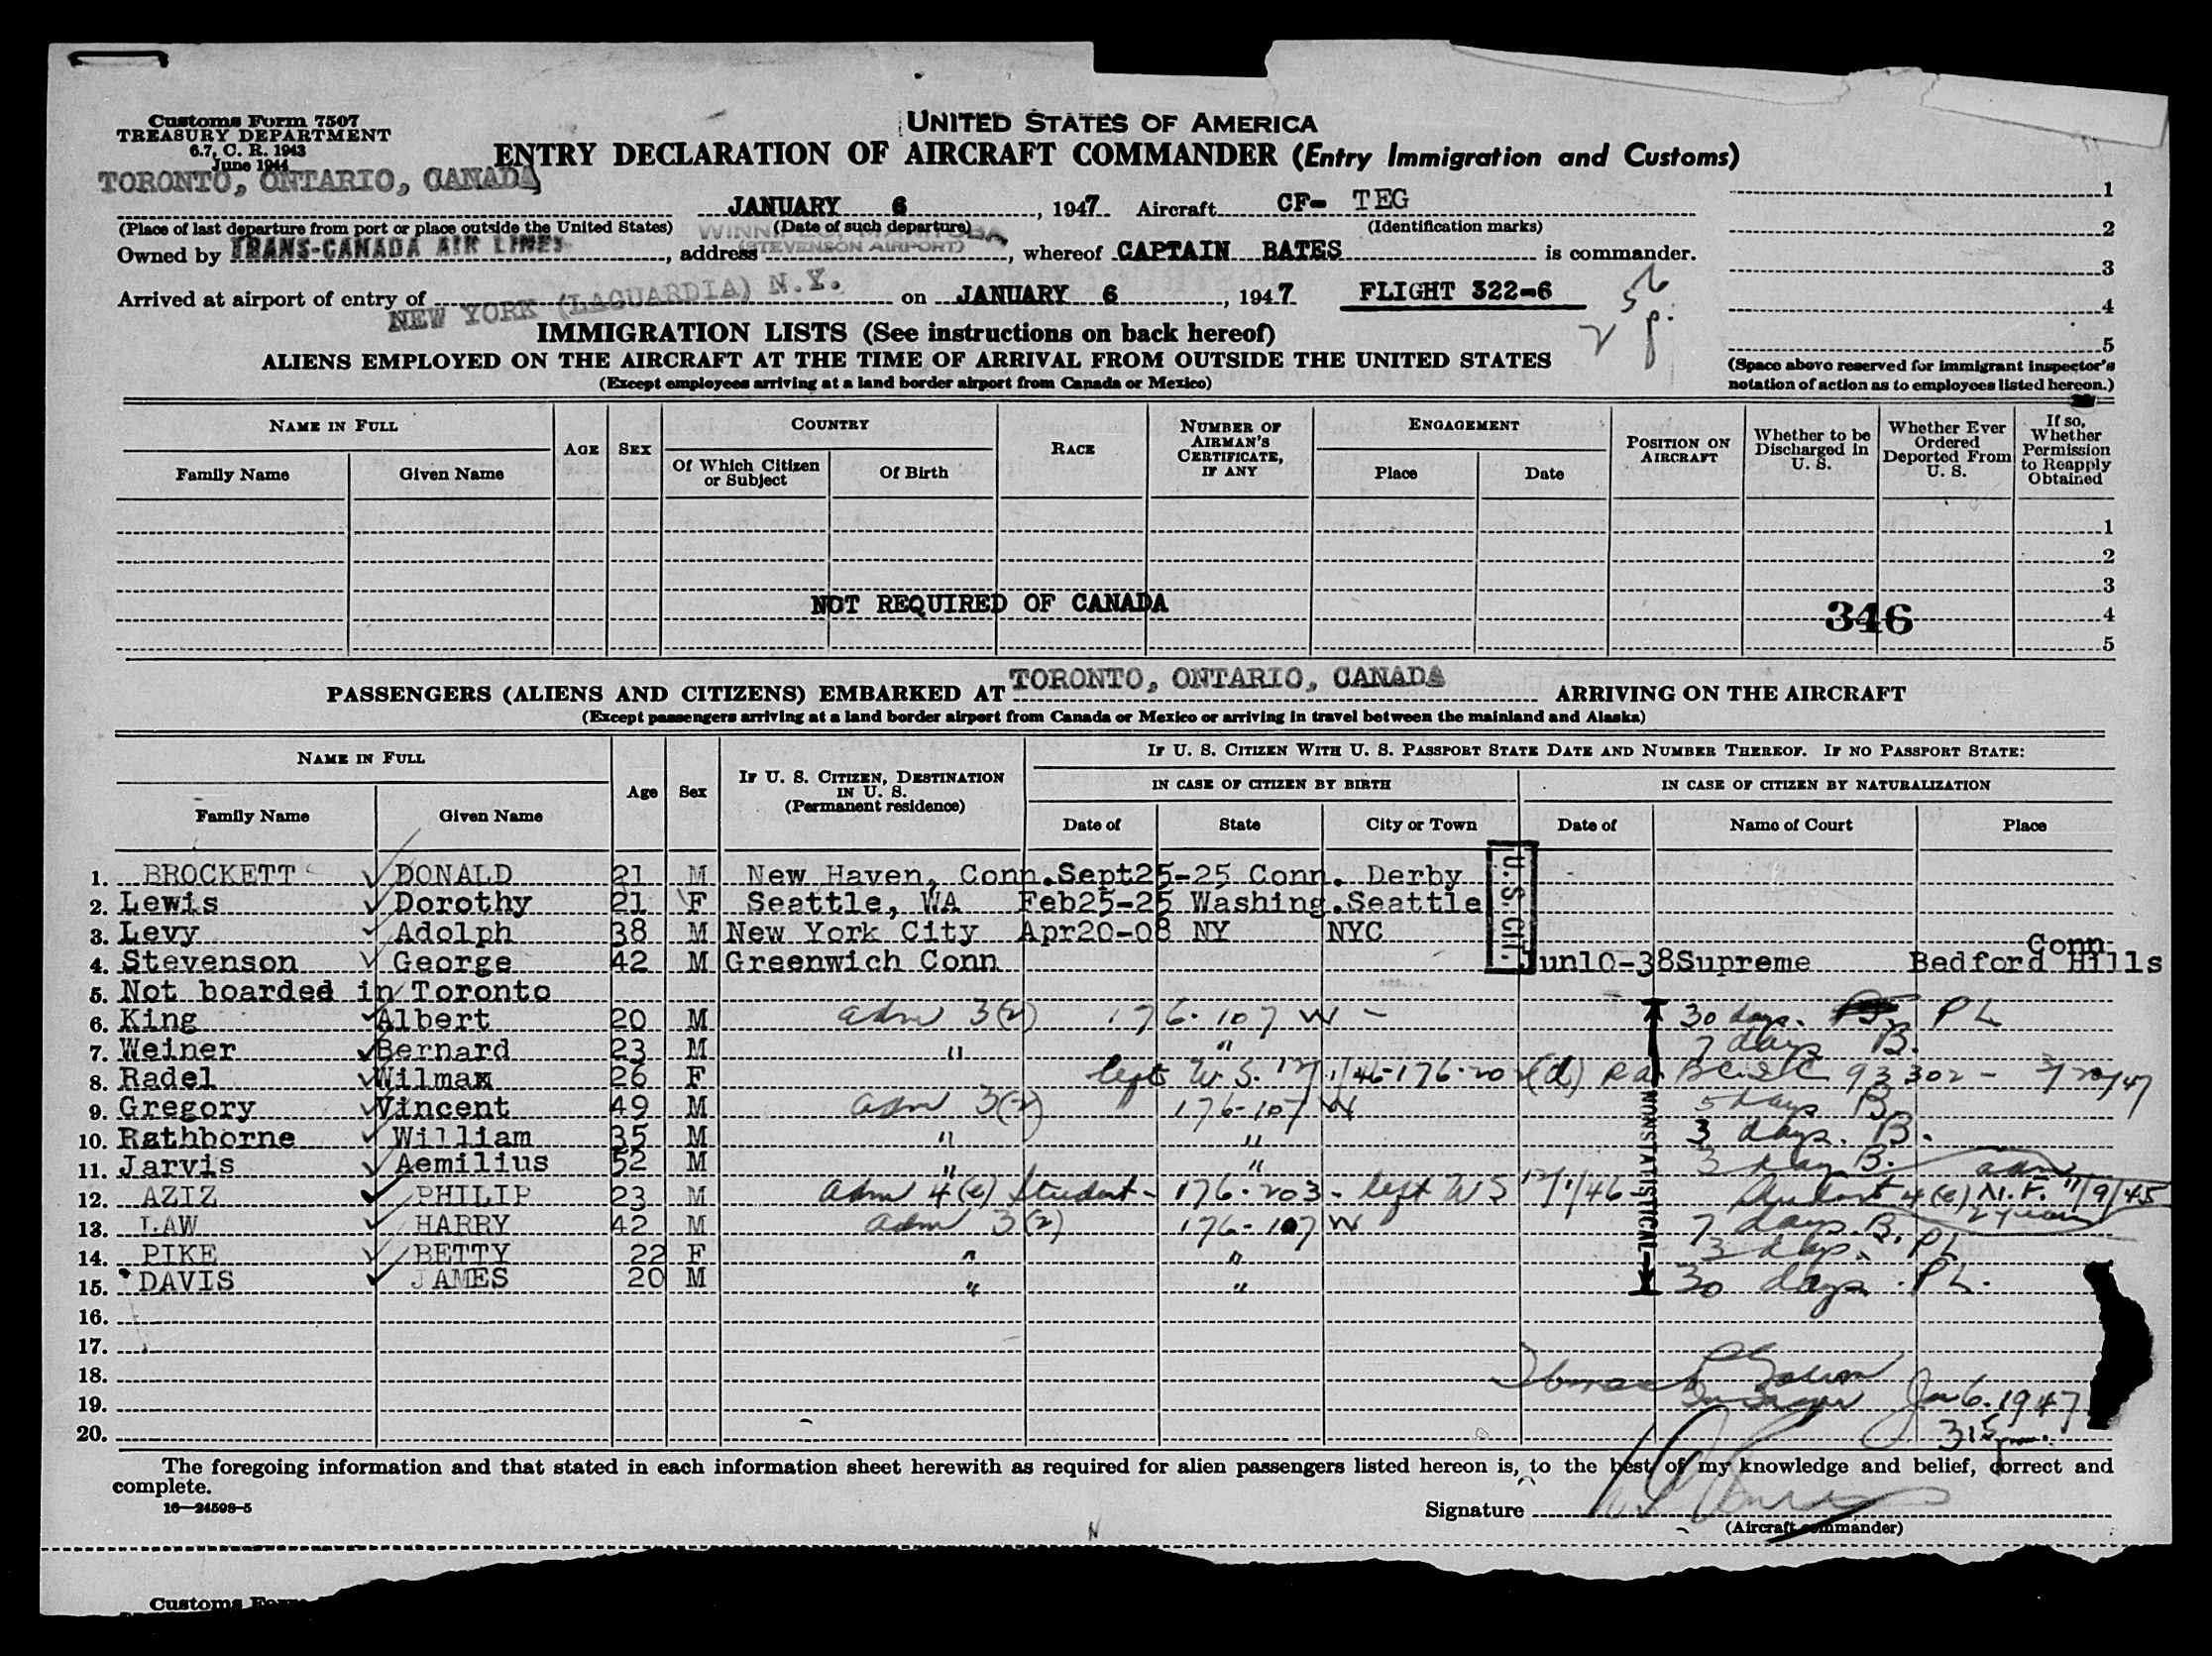 Customs Form 7507
TREASURY DEPARTMENT
6.7, C. R. 1943
June 1944
UNITED STATES OF AMERICA
ENTRY DECLARATION OF AIRCRAFT COMMANDER (Entry Immigration and Customs)
TORONTO, ONTARIO, CANADA
JANUARY 6, 1947 Aircraft CF- TEG
(Place of last departure from port or place outside the United States) (Date of such departure) (Identification marks)
WINNIPEG, MANITOBA
(STEVENSON AIRPORT)
Owned by TRANS-CANADA AIR LINES, address, whereof CAPTAIN BATES is commander.
Arrived at airport of entry of NEW YORK (LAGUARDIA) N.Y. on JANUARY 6, 1947 FLIGHT 322-6
1
2
3
4
5
(Space above reserved for immigrant inspector's notation of action as to employees listed hereon.)
IMMIGRATION LISTS (See instructions on back hereof)
ALIENS EMPLOYED ON THE AIRCRAFT AT THE TIME OF ARRIVAL FROM OUTSIDE THE UNITED STATES
(Except employees arriving at a land border airport from Canada or Mexico)
NAME IN FULL
Family Name Given Name
AGE SEX
COUNTRY
Of Which Citizen or Subject Of Birth
RACE
NUMBER OF AIRMAN'S CERTIFICATE, IF ANY
ENGAGEMENT
Place Date
POSITION ON AIRCRAFT
Whether to be Discharged in U. S.
Whether Ever Ordered Deported From U. S.
If so, Whether Permission to Reapply Obtained
1
2
3
NOT REQUIRED OF CANADA
346
4
5
PASSENGERS (ALIENS AND CITIZENS) EMBARKED AT TORONTO, ONTARIO, CANADA ARRIVING ON THE AIRCRAFT
(Except passengers arriving at a land border airport from Canada or Mexico or arriving in travel between the mainland and Alaska)
NAME IN FULL
Family Name Given Name
Age Sex
IF U. S. CITIZEN, DESTINATION IN U. S. (Permanent residence)
IF U. S. CITIZEN WITH U. S. PASSPORT STATE DATE AND NUMBER THEREOF. IF NO PASSPORT STATE:
IN CASE OF CITIZEN BY BIRTH IN CASE OF CITIZEN BY NATURALIZATION
Date of State City or Town Date of Name of Court Place
U.S. CIT.
1. BROCKETT DONALD 21 M New Haven, Conn. Sept25-25 Conn. Derby
2. Lewis Dorothy 21 F Seattle, WA Feb25-25 Washing. Seattle
3. Levy Adolph 38 M New York City Apr20-08 NY NYC
4. Stevenson George 42 M Greenwich Conn Jun10-38 Supreme Bedford Hills Conn
5. Not boarded in Toronto
6. King Albert 20 M adm 3(2) 176-107 W - 30 days. PL
7. Weiner Bernard 23 M " " 7 days B.
8. Radel Wilma 26 F left U.S. 12/1/46-176-20 (d) 93302 - 3/20/47
9. Gregory Vincent 49 M adm 3(2) 176-107 W 5 days B
10. Rathborne William 35 M " " 3 days. B.
11. Jarvis Aemilius 52 M " " 3 days B. adm
12. AZIZ PHILIP 23 M adm 4(e) Student - 176-203 - left U S 12/1/46 Student 4(e) N.F. 11/9/45
13. LAW HARRY 42 M adm 3(2) 176-107 W 7 days. B. 2 years
14. PIKE BETTY 22 F " " 3 days. PL
15. DAVIS JAMES 20 M " " 30 days. PL.
NONSTATISTICAL
16.
17.
18.
19. Jan 6. 1947
20. 315 pm.
The foregoing information and that stated in each information sheet herewith as required for alien passengers listed hereon is, to the best of my knowledge and belief, correct and
complete.
16—24598-5
Signature
(Aircraft commander)
Customs Form